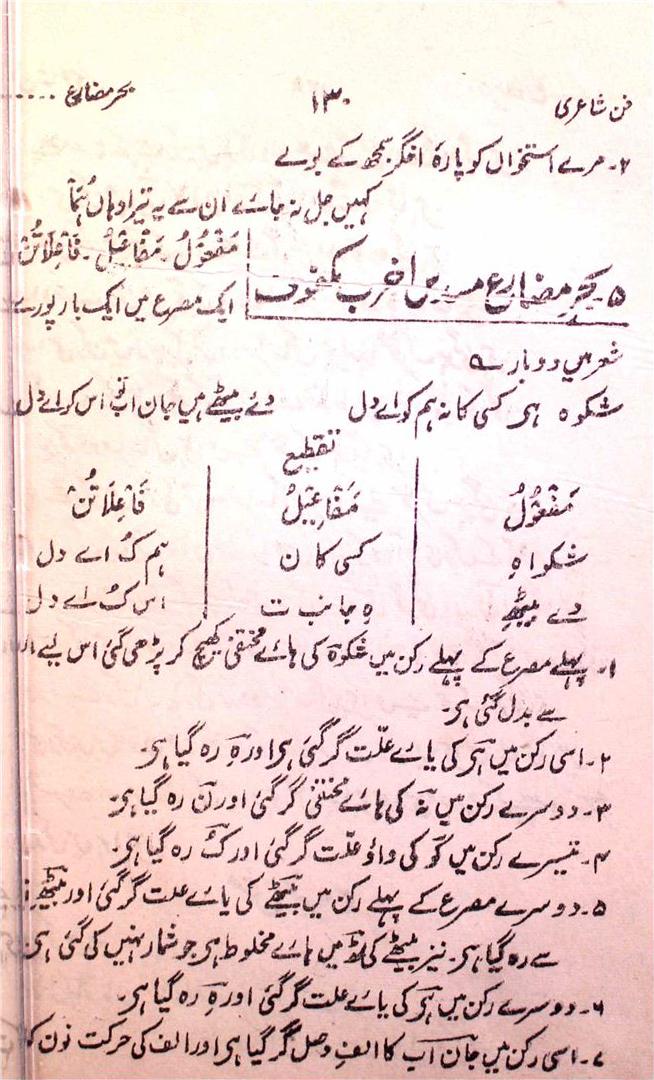 فن شاعری ۱۳۰ بحر مضارع .....
۲۔ مرے استخواں کو پارۂ افگر سمجھ کے بولے
کہیں جل نہ جائے ان سے یہ تیرا دہاں ہُما
۵۔ بحر مضارع مسدس اخرب مکفوف
مَفْعُوْلُ۔ مَفَاعِیْلُ۔ فَاعِلَاتُنْ
ایک مصرع میں ایک بار پورے
شعر میں دو بار ہے
شکوہ ہر کسی کا نہ ہم کو اے دل دے بیٹھے ہیں جان اب تو اس کو اے دل
تقطیع
مَفْعُوْلُ مَفَاعِیْلُ فَاعِلَاتُنْ
شکواہِ کسی کا نَ ہم کُ اے دل
دے بیٹھِ ہِ جانب ت اس کُ اے دل
۱۔ پہلے مصرع کے پہلے رکن میں شکوہ کی ہائے مختفی کھینچ کر پڑھی گئی اس لیے الف
سے بدل گئی ہر۔
۲۔ اسی رکن میں ہَر کی یائے علّت گر گئی ہر اور ہِ رہ گیا ہر۔
۳۔ دوسرے رکن میں نہ کی ہائے مختفی گر گئی اور نَ رہ گیا ہر۔
۴۔ تیسرے رکن میں کو کی واؤ علّت گر گئی اور کُ رہ گیا ہر۔
۵۔ دوسرے مصرع کے پہلے رکن میں بیٹھے کی یائے علت گر گئی اور بیٹھِ
سے رہ گیا ہر۔ نیز بیٹھے کی ٹھ میں ہائے مخلوط ہر جو شمار نہیں کی گئی ہر۔
۶۔ دوسرے رکن میں ہَر کی یائے علت گر گئی اور ہِ رہ گیا ہر۔
۷۔ اسی رکن میں جان اب کا الف وصل گر گیا ہر اور الف کی حرکت نون کو